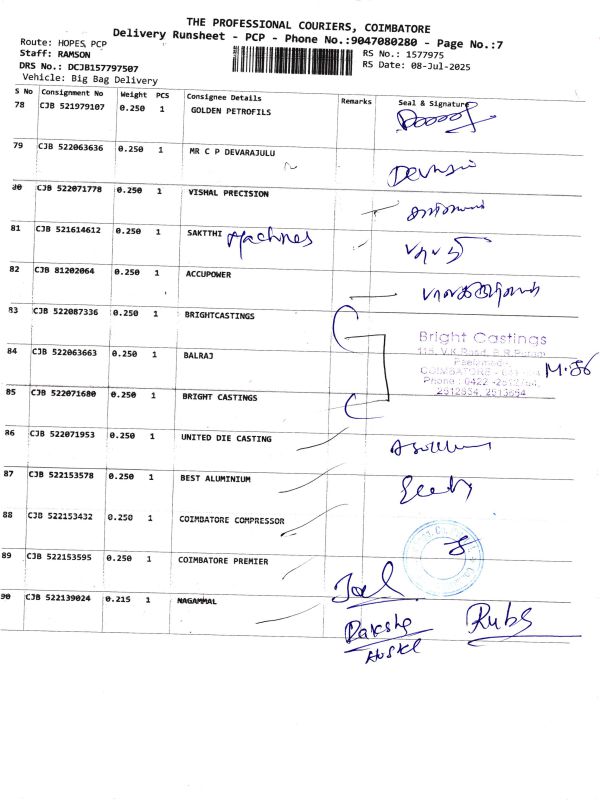 THE PROFESSIONAL COURIERS, COIMBATORE
Delivery Runsheet - PCP - Phone No.:9047080280 - Page No.:7
Route: HOPES, PCP
Staff: RAMSON
DRS No.: DCJB157797507
Vehicle: Big Bag Delivery
RS No.: 1577975
RS Date: 08-Jul-2025
S No Consignment No Weight PCS Consignee Details Remarks Seal & Signature
78 CJB 521979107 0.250 1 GOLDEN PETROFILS
79 CJB 522063636 0.250 1 MR C P DEVARAJULU
80 CJB 522071778 0.250 1 VISHAL PRECISION
81 CJB 521614612 0.250 1 SAKTTHI Machines
82 CJB 81202064 0.250 1 ACCUPOWER
83 CJB 522087336 0.250 1 BRIGHTCASTINGS
Bright Castings
84 CJB 522063663 0.250 1 BALRAJ
COIMBATORE
Phone : 0422
85 CJB 522071680 0.250 1 BRIGHT CASTINGS
86 CJB 522071953 0.250 1 UNITED DIE CASTING
87 CJB 522153578 0.250 1 BEST ALUMINIUM
88 CJB 522153432 0.250 1 COIMBATORE COMPRESSOR
89 CJB 522153595 0.250 1 COIMBATORE PREMIER
90 CJB 522139024 0.215 1 NAGAMMAL